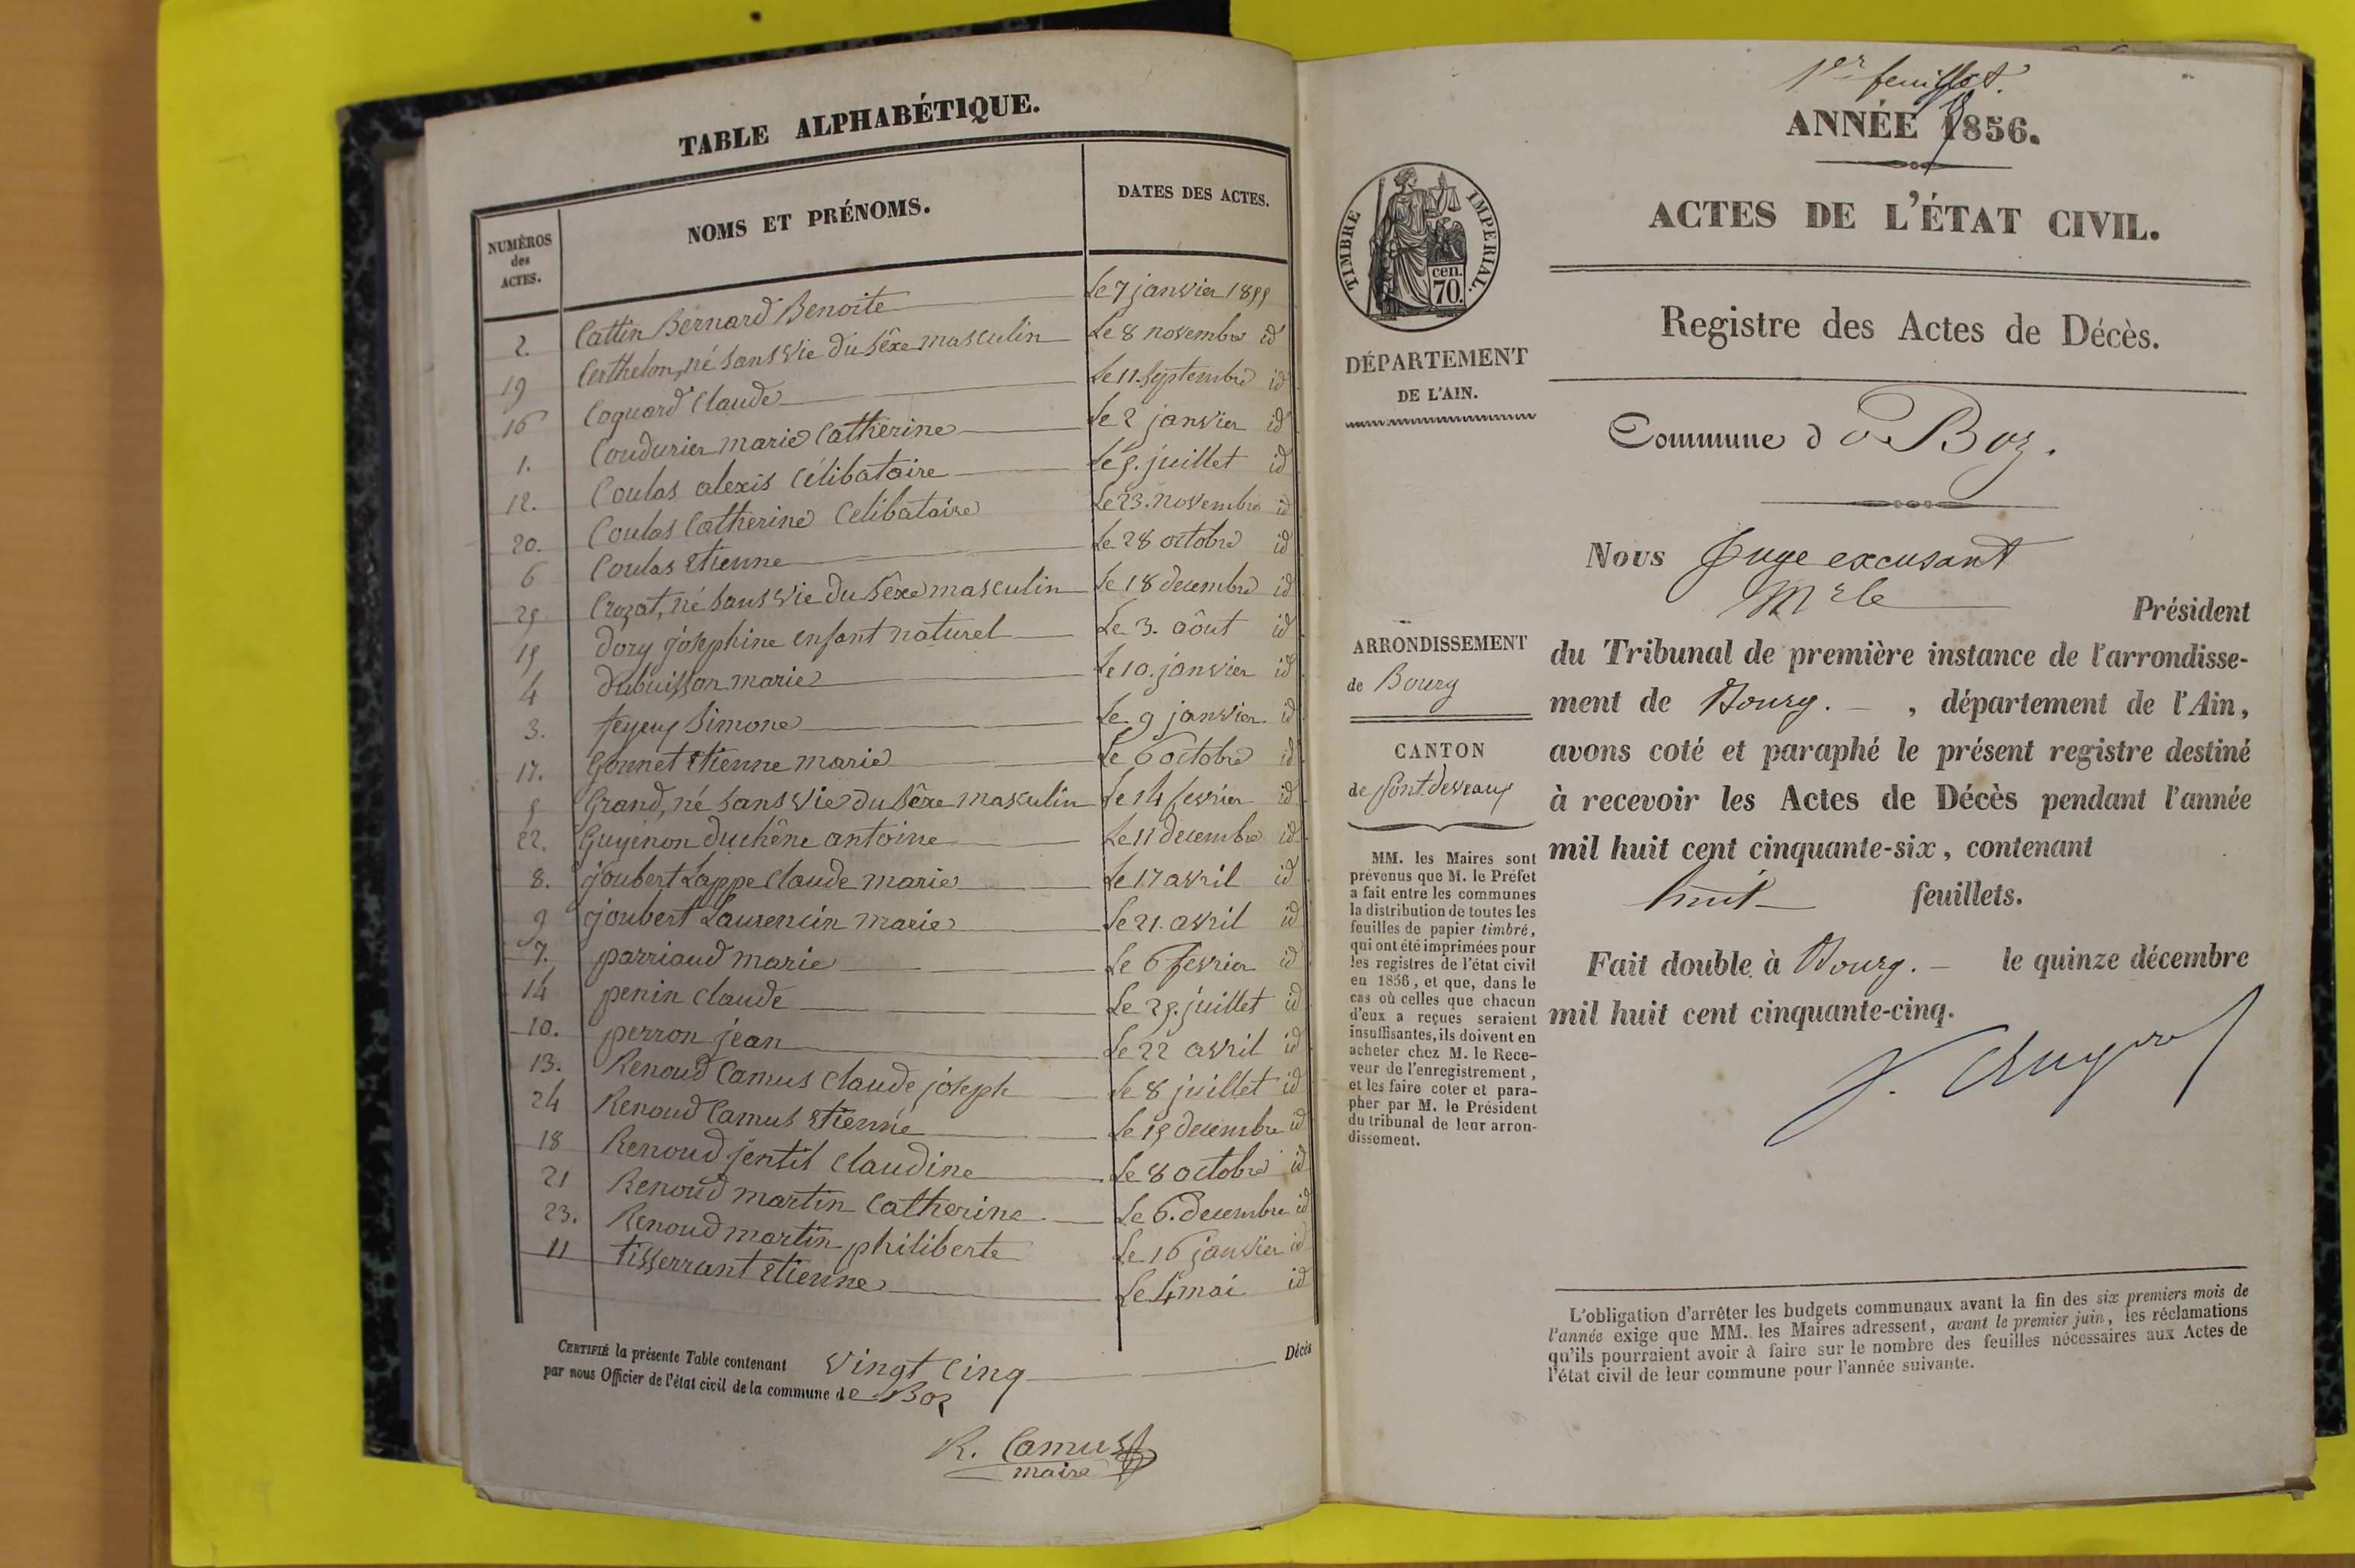 TABLE ALPHABÉTIQUE.
NUMÉROS
des
ACTES.
NOMS ET PRÉNOMS.
DATES DES ACTES.
2. Cattin Bernard Benoite Le 7 janvier 1855
19 Certhelon, né sans vie du sêxe masculin Le 8 novembre id
16 Coquard Claude Le 11. septembre id
1. Coudurier marie Catherine Le 2 janvier id
12. Coulas alexis Célibataire Le 5. juillet id
20. Coulas Catherine Celibataire Le 23. novembre id
6 Coulas Etienne Le 28 octobre id
25 Crozat, né sans vie du sêxe masculin Le 18 decembre id
15 dory josephine enfant naturel Le 3. aôut id
4 dubuisson marie Le 10. janvier id
3. feyeux Simone Le 9 janvier id
17. Gonnet Etienne marie Le 6 octobre id
5 Grand, né sans vie du sêxe masculin Le 14 fevrier id
22. Guyenon duchêne antoine Le 11 decembre id
8. joubert Lappe Claude marie Le 17 avril id
9 joubert Laurencin marie Le 21. avril id
7. parriaud marie Le 6 fevrier id
14 penin Claude Le 25. juillet id
10. perron jean Le 22 avril id
13. Renoud Camus Claude joseph Le 8 juillet id
24 Renoud Camus Etienne Le 15 decembre id
18 Renoud jentil Claudine Le 8 octobre id
21 Renoud martin Catherine Le 6. decembre id
23. Renoud martin philiberte Le 16 janvier id
11 tisserrant Etienne Le 4 mai id
CERTIFIÉ la présente Table contenant vingt cinq Décès
par nous Officier de l'état civil de la commune de Boz
R. Camus
maire
1er feuillet.
ANNÉE 1856.
ACTES DE L'ÉTAT CIVIL.
Registre des Actes de Décès.
TIMBRE IMPERIAL.
cen.
70.
DÉPARTEMENT
DE L'AIN.
Commune de Boz.
Nous Juge excusant
Mr le Président
du Tribunal de première instance de l'arrondisse-
ment de Bourg. , département de l'Ain,
avons coté et paraphé le présent registre destiné
à recevoir les Actes de Décès pendant l'année
mil huit cent cinquante-six, contenant
huit feuillets.
Fait double à Bourg. le quinze décembre
mil huit cent cinquante-cinq.
ARRONDISSEMENT
de Bourg
CANTON
de pontdeveaux
MM. les Maires sont
prévenus que M. le Préfet
a fait entre les communes
la distribution de toutes les
feuilles de papier timbré,
qui ont été imprimées pour
les registres de l'état civil
en 1856, et que, dans le
cas où celles que chacun
d'eux a reçues seraient
insuffisantes, ils doivent en
acheter chez M. le Rece-
veur de l'enregistrement,
et les faire coter et para-
pher par M. le Président
du tribunal de leur arron-
dissement.
L'obligation d'arrêter les budgets communaux avant la fin des six premiers mois de
l'année exige que MM. les Maires adressent, avant le premier juin, les réclamations
qu'ils pourraient avoir à faire sur le nombre des feuilles nécessaires aux Actes de
l'état civil de leur commune pour l'année suivante.